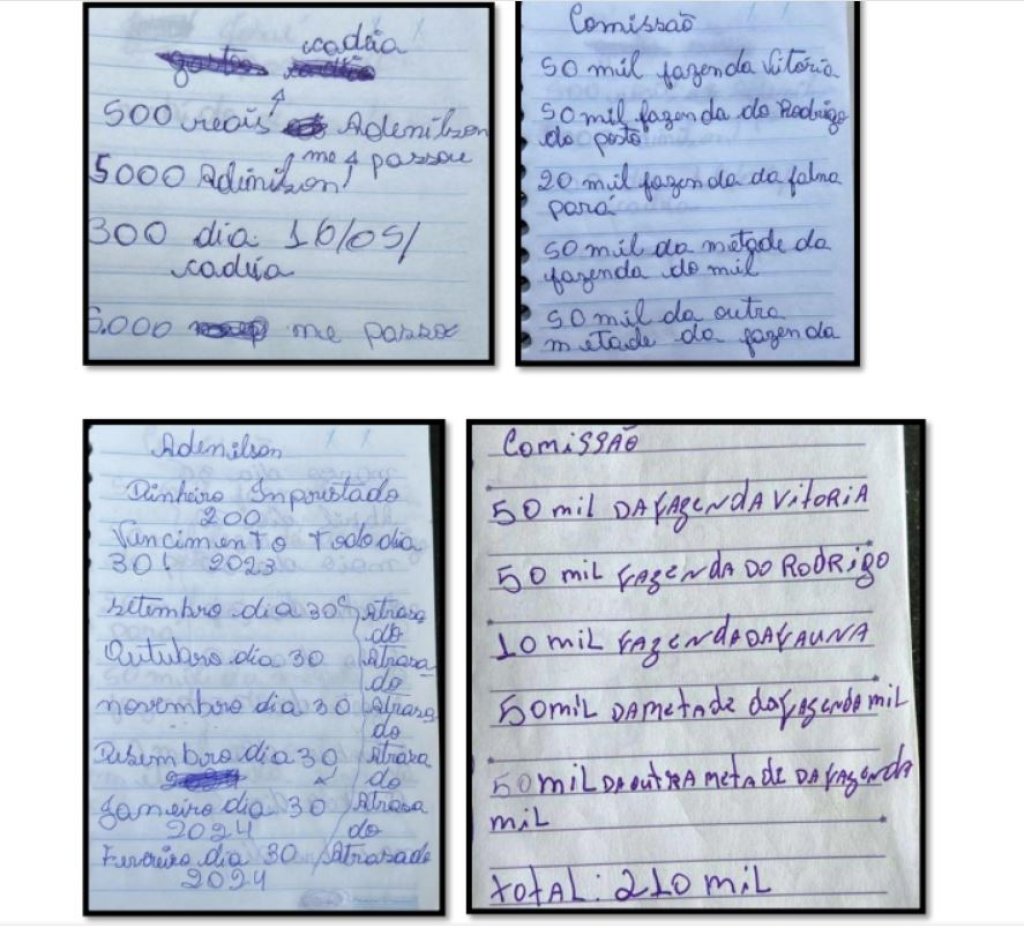 cadeia
500 reais Adenilson
me passou
5000 Adenilson
300 dia 16/05/
cadeia
5.000 me passou
Comissaõ
50 mil fazenda Vitória
50 mil fazenda do Rodrigo
do posto
20 mil fazenda da falna
pará
50 mil da métade da
fazenda do mil
50 mil da outra
metade da fazenda
Adenilson
Dinheiro Inprestado
200
Vancimento Todo dia
30 2023
setembro dia 30 Atrasa
do
Outubro dia 30 Atrasa
do
novembro dia 30 Atrasa
do
Desembro dia 30 Atrasa
do
Janeiro dia 30 Atrasa
2024 do
Fevereiro dia 30 Atrasado
2024
ComiSSÃO
50 mil DA fAzENdA VitoRiA
50 mil fAzENdA DO RODRigo
10 mil fAzENdA DA fAUNA
50 mil DA metAde da fAzENdA mil
50 mil DA outRA metADE DA fAzENdA
mil
totAL: 210 mil